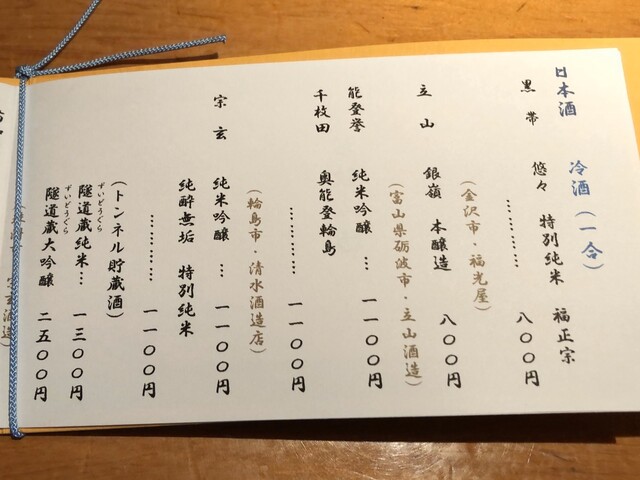 日本酒 冷酒(一合)
黒帯 悠々 特別純米 福正宗
………… 八〇〇円
(金沢市・福光屋)
立山 銀嶺 本醸造 八〇〇円
(富山県砺波市・立山酒造)
能登誉 純米吟醸 … 一一〇〇円
千枚田 奥能登輪島
………… 一一〇〇円
(輪島市・清水酒造店)
宗玄 純米吟醸 … 一一〇〇円
純酔無垢 特別純米
………… 一一〇〇円
(トンネル貯蔵酒)
ずいどうぐら
隧道蔵純米… 一三〇〇円
ずいどうぐら
隧道蔵大吟醸 二五〇〇円
宗玄酒造)